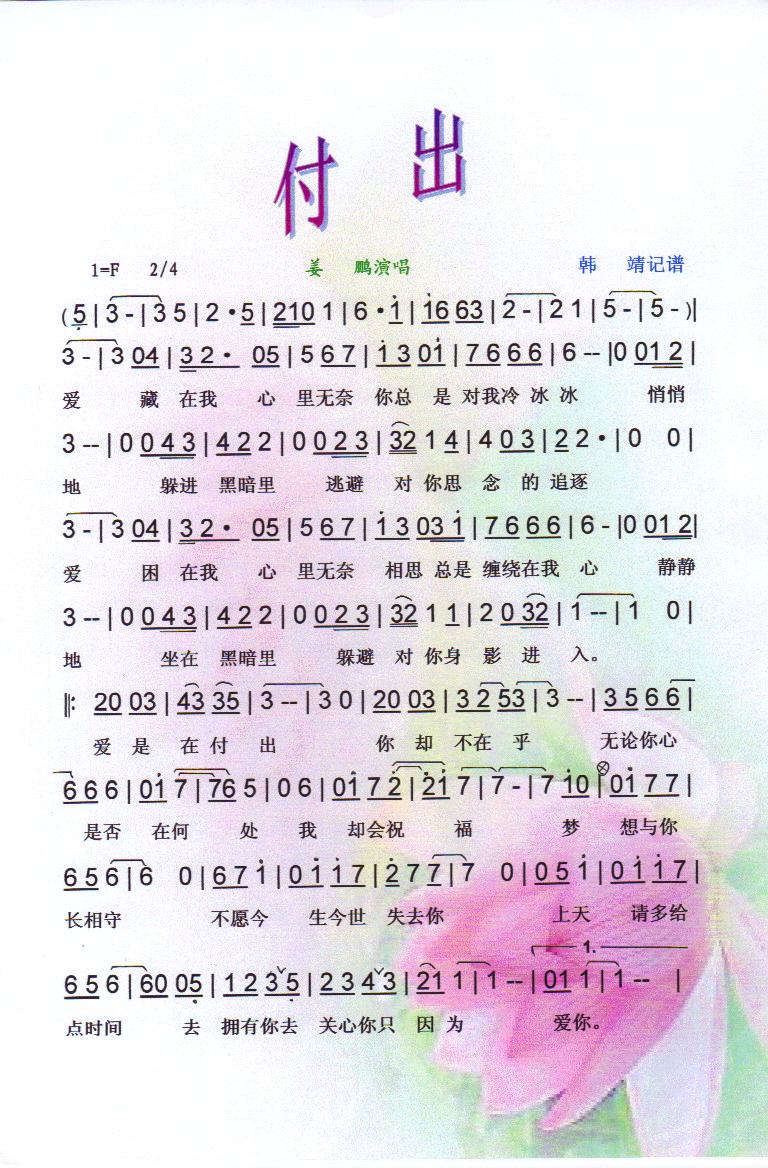 付 出
1=F 2/4 姜 鹏演唱 韩 靖记谱
(5 | 3 - | 3 5 | 2 · 5 | 210 1 | 6 · 1 | 16 63 | 2 - | 2 1 | 5 - | 5 - )|
3 - | 3 04 | 3 2 · 05 | 5 6 7 | 1 3 01 | 7 6 6 6 | 6 -- |0 01 2 |
爱 藏 在我 心 里无奈 你总 是 对我冷 冰 冰 悄悄
3 -- | 0 0 4 3 | 4 2 2 | 0 0 2 3 | 32 1 4 | 4 0 3 | 2 2 · | 0 0 |
地 躲进 黑暗里 逃避 对 你思 念 的 追逐
3 - | 3 04 | 3 2 · 05 | 5 6 7 | 1 3 03 1 | 7 6 6 6 | 6 - |0 01 2|
爱 困 在我 心 里无奈 相思 总是 缠绕在我 心 静静
3 -- | 0 0 4 3 | 4 2 2 | 0 0 2 3 | 32 1 1 | 2 0 32 | 1 -- | 1 0 |
地 坐在 黑暗里 躲避 对 你身 影 进 入。
‖: 20 03 | 43 35 | 3 -- | 3 0 | 20 03 | 3 2 53 | 3 -- | 3 5 6 6 |
爱 是 在 付 出 你 却 不在 乎 无论你心
6 6 6 | 01 7 | 76 5 | 0 6 | 01 7 2 | 21 7 | 7 - | 7 10 | 01 7 7 |
是否 在何 处 我 却会祝 福 梦 想与你
6 5 6 | 6 0 | 6 7 1 | 0 1 1 7 | 2 7 7 | 7 0 | 0 5 1 | 0 1 1 7 |
长相守 不愿今 生今世 失去你 上天 请多给
1.
6 5 6 | 60 05 | 1 2 3 5 | 2 3 4 3 | 21 1 | 1 -- | 01 1 | 1 -- |
点时间 去 拥有你去 关心你只 因 为 爱你。